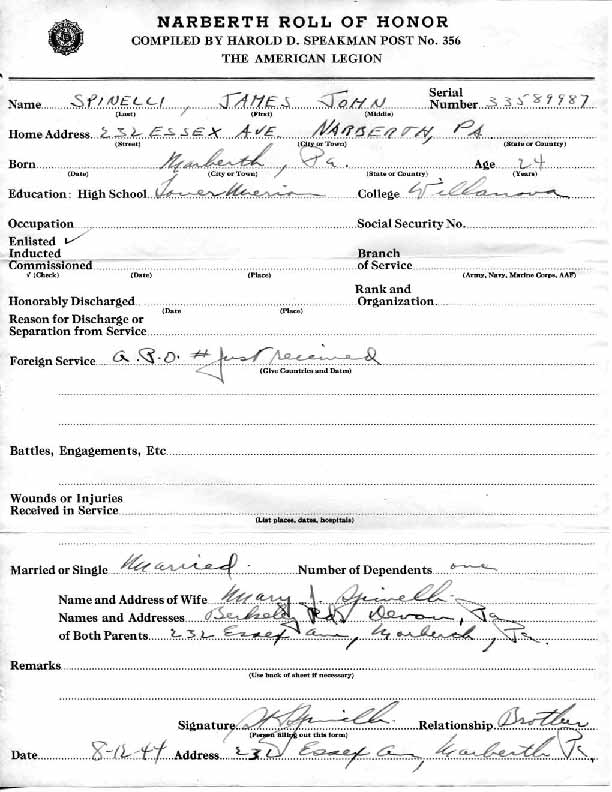 NARBERTH ROLL OF HONOR
COMPILED BY HAROLD D. SPEAKMAN POST No. 356
THE AMERICAN LEGION
Name SPINELLI, JAMES JOHN Serial Number 33589987
(Last) (First) (Middle)
Home Address 232 ESSEX AVE NARBERTH, PA
(Street) (City or Town) (State or Country)
Born Narberth, Pa. Age 24
(Date) (City or Town) (State or Country) (Years)
Education: High School Lower Merion College Villanova
Occupation Social Security No.
Enlisted ✓
Inducted Branch
Commissioned of Service
√ (Check) (Date) (Place) (Army, Navy, Marine Corps, AAF)
Rank and
Honorably Discharged Organization
(Date (Place)
Reason for Discharge or
Separation from Service
Foreign Service A.P.O. # just received
(Give Countries and Dates)
Battles, Engagements, Etc
Wounds or Injuries
Received in Service
(List places, dates, hospitals)
Married or Single Married Number of Dependents one
Name and Address of Wife Mary J. Spinelli
Names and Addresses Rd, Devon, Pa
of Both Parents 232 Essex Ave, Narberth, Pa.
Remarks
(Use back of sheet if necessary)
Signature Spinelli Relationship Brother
(Person filling out this form)
Date 8-12-44 Address 232 Essex Ave, Narberth Pa